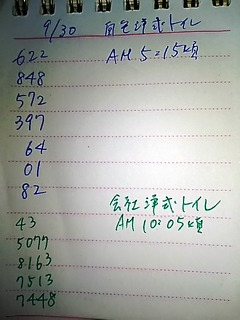 9/30 自宅洋式トイレ
622 AM 5:15頃
848
572
397
64
01
82
会社洋式トイレ
43 AM 10:05頃
5077
8163
7513
7448